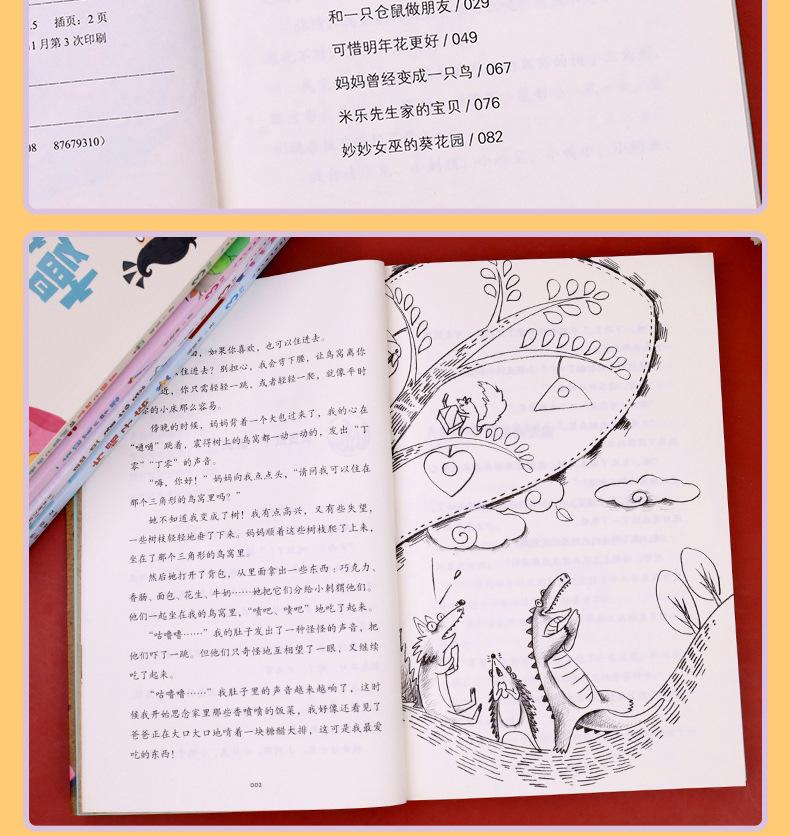 .5 插页：2 页
1 月第 3 次印刷
08 87679310）
和一只仓鼠做朋友 / 029
可惜明年花更好 / 049
妈妈曾经变成一只鸟 / 067
米乐先生家的宝贝 / 076
妙妙女巫的葵花园 / 082
，如果你喜欢，也可以住进去。
住进去？别担心，我会弯下腰，让鸟窝离你
近，你只需轻轻一跳，或者轻轻一爬，就像平时
你的小床那么容易。
傍晚的时候，妈妈背着一个大包过来了，我的心在
“嗵嗵”跳着，震得树上的鸟窝都一动一动的，发出“丁
零”“丁零”的声音。
“嗨，你好！”妈妈向我点点头，“请问我可以住在
那个三角形的鸟窝里吗？”
她不知道我变成了树！我有点高兴，又有些失望，
一些树枝轻轻地垂了下来。妈妈顺着这些树枝爬了上来，
坐在了那个三角形的鸟窝里。
然后她打开了背包，从里面拿出一些东西：巧克力、
香肠、面包、花生、牛奶……她把它们分给小刺猬他们。
他们一起坐在我的鸟窝里，“啧吧、啧吧”地吃了起来。
“咕噜噜……”我的肚子发出了一种怪怪的声音，把
他们吓了一跳。但他们只奇怪地互相望了一眼，又继续
吃了起来。
“咕噜噜……”我肚子里的声音越来越响了，这时
候我开始思念家里那些香喷喷的饭菜，我好像还看见了
爸爸正在大口大口地啃着一块糖醋大排，这可是我最爱
吃的东西！
002